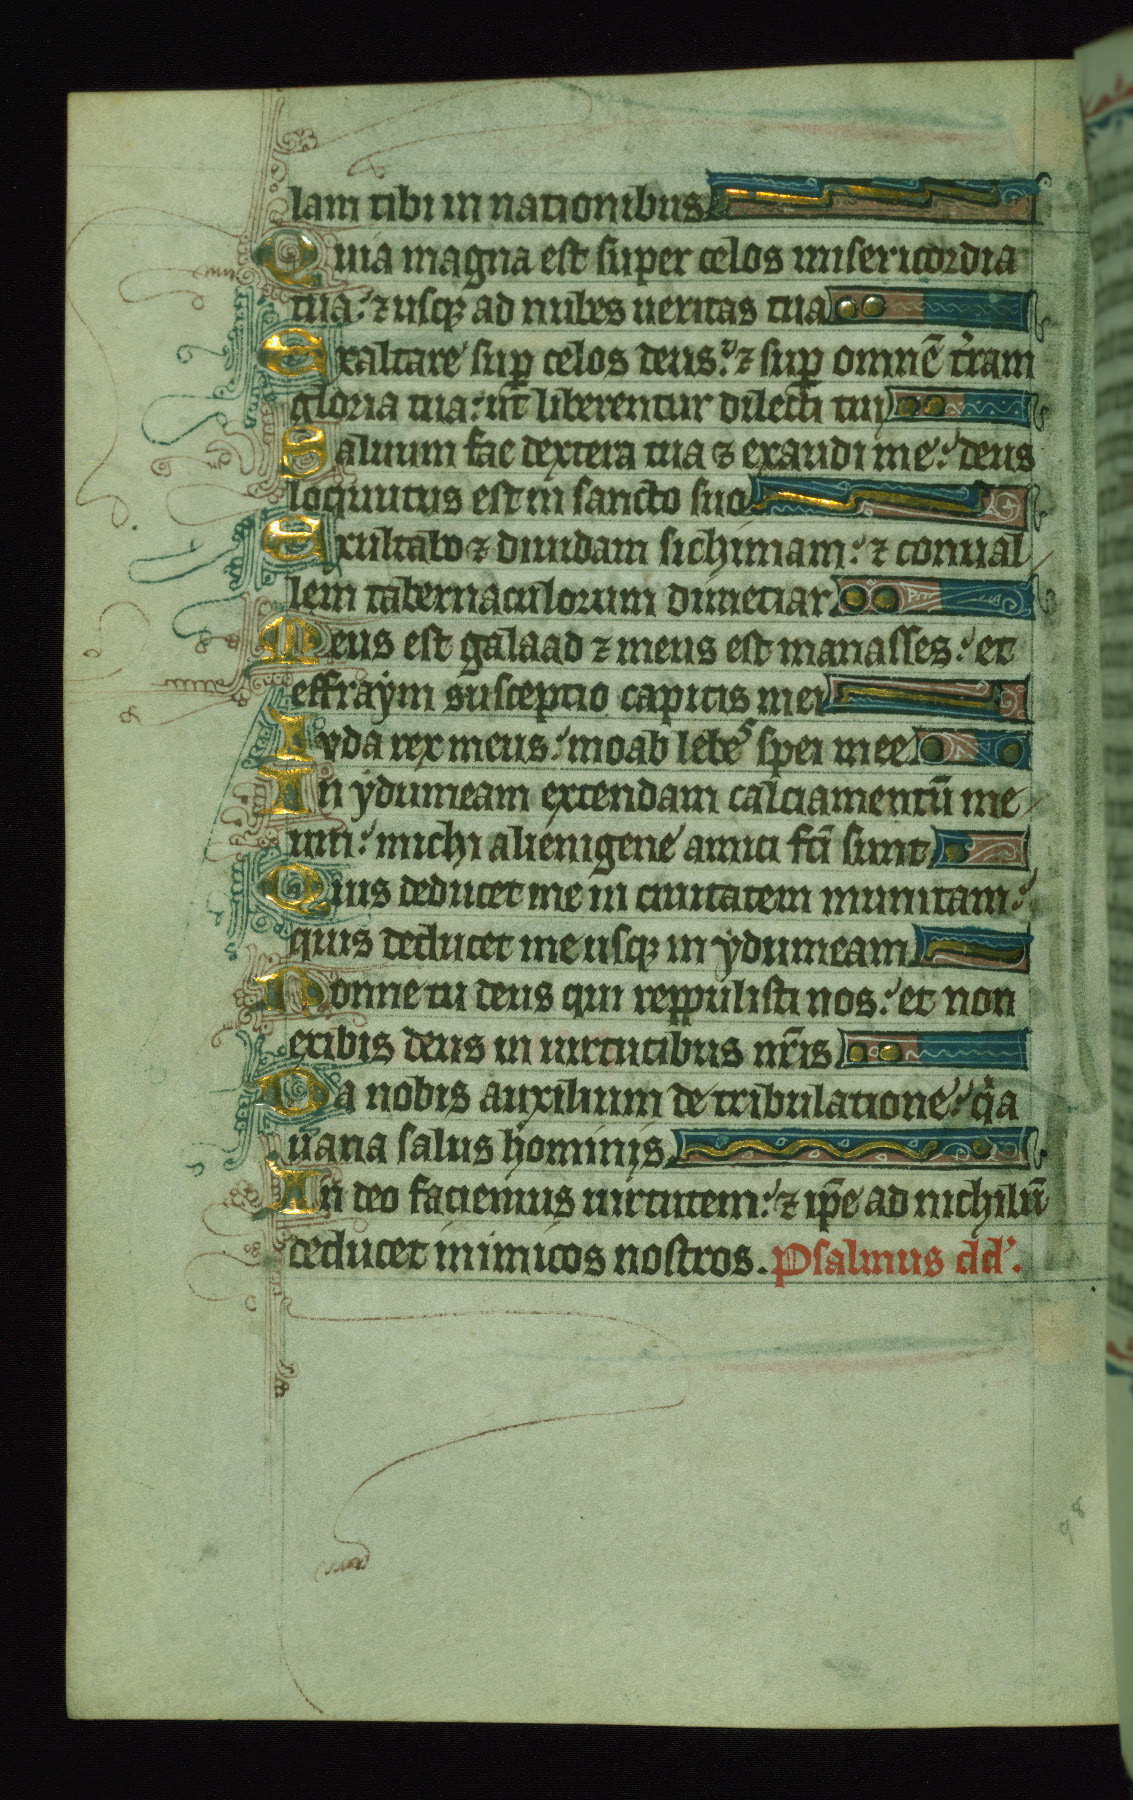 lam tibi in nationibus
Quia magna est super celos misericordia
tua: ⁊ usqꝫ ad nubes ueritas tua
Exaltare suꝑ celos deus: ⁊ suꝑ omnē t̃ram
gloria tua: ut̄ liberentur dilecti tui
Saluum fac dextera tua ⁊ exaudi me: deus
loquutus est in sancto suo
Exultabo ⁊ diuidam sichimam: ⁊ conual
lem tabernaculorum dimetiar
Meus est galaad ⁊ meus est manasses: et
effraym susceptio capitis mei
Iuda rex meus: moab lebeˢ spei mee
In ydumeam extendam calciamentū me
um: michi alienigene amici fc̄i sunt
Quis deducet me in ciuitatem munitam:
quis deducet me usqꝫ in ydumeam
Nonne tu deus qui reppulisti nos: et non
exibis deus in uirtutibus nr̄is
Da nobis auxilium de tribulatione: qⁱa
uana salus hominis
In deo faciemus uirtutem: ⁊ ip̄e ad nichilū
deducet inimicos nostros. Psalmus dd'.
98